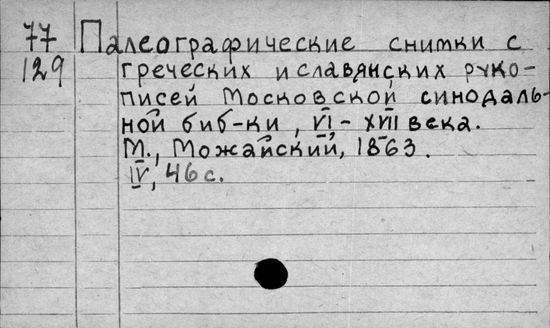 77 Палеографические снимки с
129 греческих и славянских руко-
писей Московской синодаль-
ной биб-ки, VI - XVII века.
М., Можайский, 1863.
IV, 46 с.